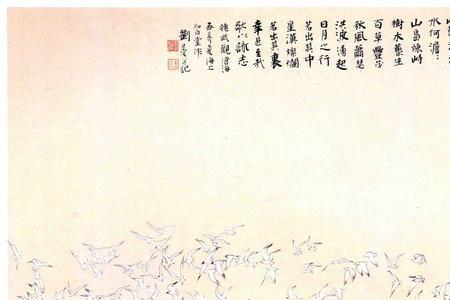 水何澹〻
山島竦峙
樹木叢生
百草豐茂
秋風蕭瑟
洪波湧起
日月之行
若出其中
星漢燦爛
若出其裏
幸甚至哉
歌以詠志
魏武觀滄海
海上
劉旦宅記